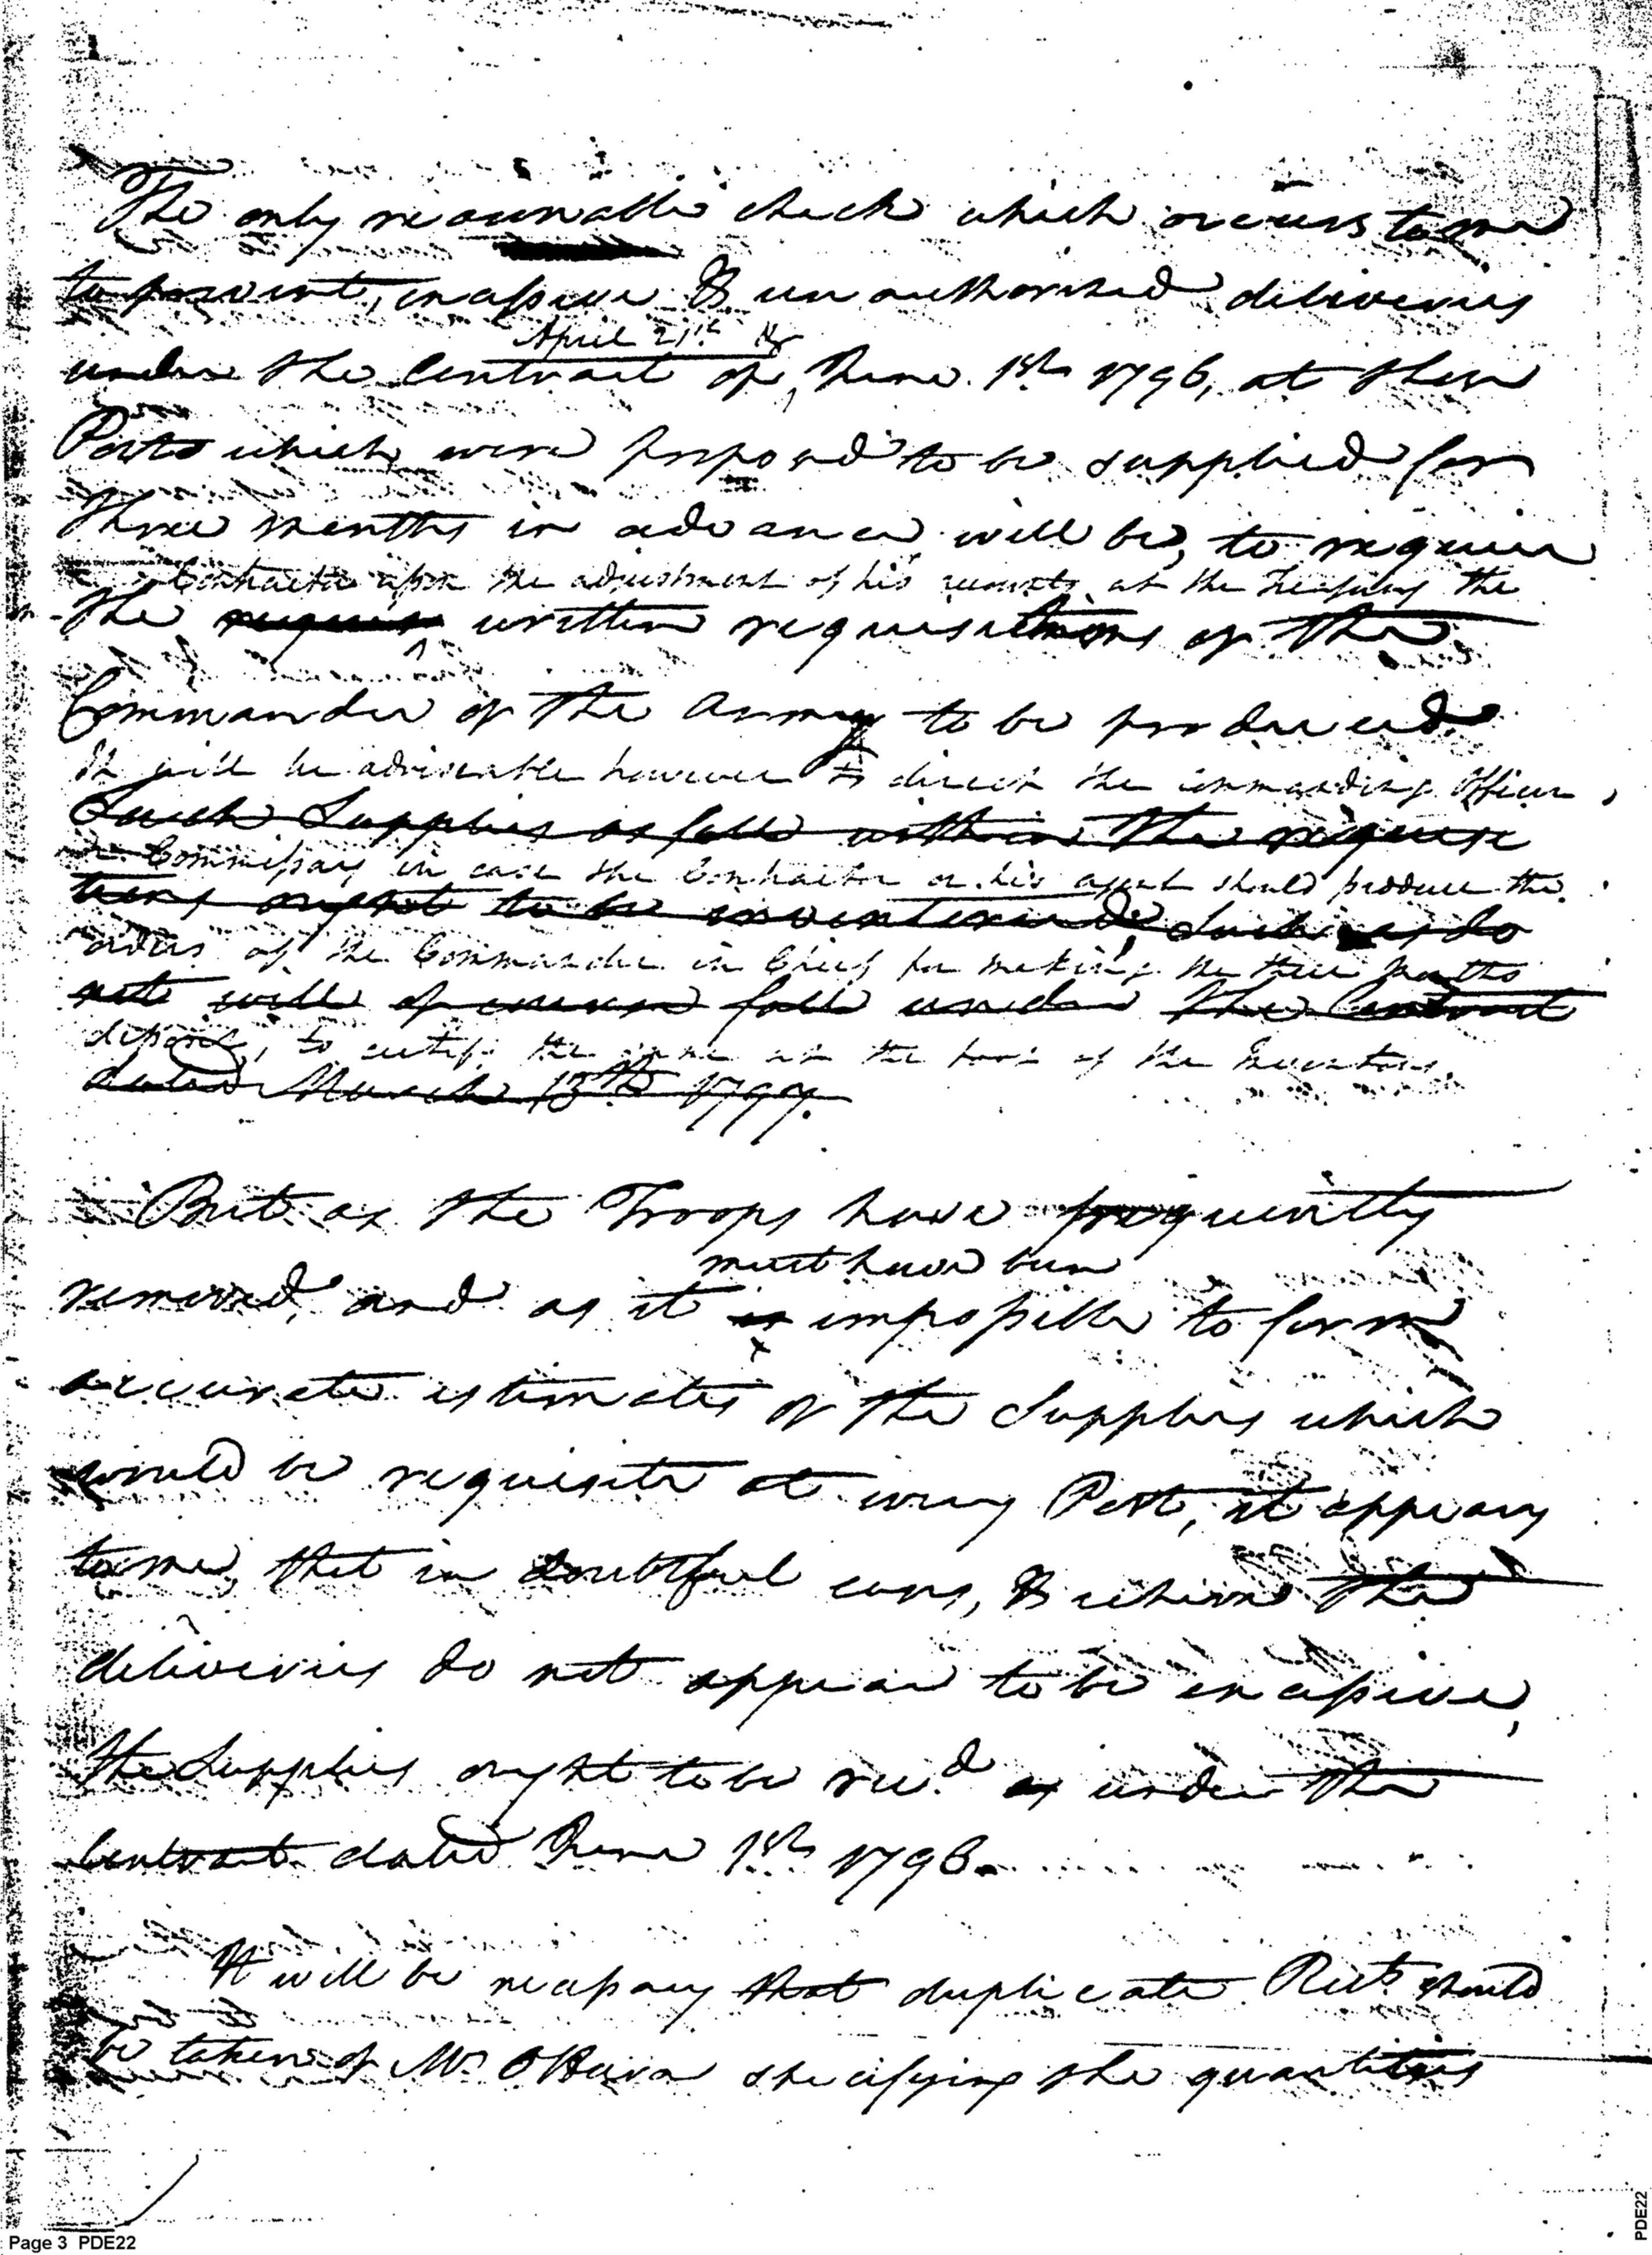 The only reasonable check which occurs to me
to prevent, excessive & unauthorised deliveries
April 21st &
under the Contract of, June 1st 1796, at those
Posts which were proposed to be supplied for
three months in advance will be, to require
Contractor upon the adjustment of his accounts at the Treasury the
the requisi written requisitions of the
Commander of the Army to be produced.
It will be adviseable however to direct the commanding Officer,
Such Supplies as fall within the requisi
or Commissary in case the Contractor or his agent should produce the
tions ought to be inventoried, Such as do
orders of the Commander in Chief for making the three months
not will of course fall under the Contract
deposit, to certify the same at the foot of the Inventory.
dated March 15th 1797.
But as the Troops have frequently
must have been
removed, and as it is impossible to form
accurate estimates of the Supplies which
would be requisite at every Post, it appears
to me, that in doubtful cases, & where the
deliveries do not appear to be excessive,
the Supplies ought to be recd. as under the
Contract dated June 1st 1796.
It will be necessary that duplicate Rects should
be taken of Mr. OHara specifying the quantities
Page 3 PDE22
PDE22